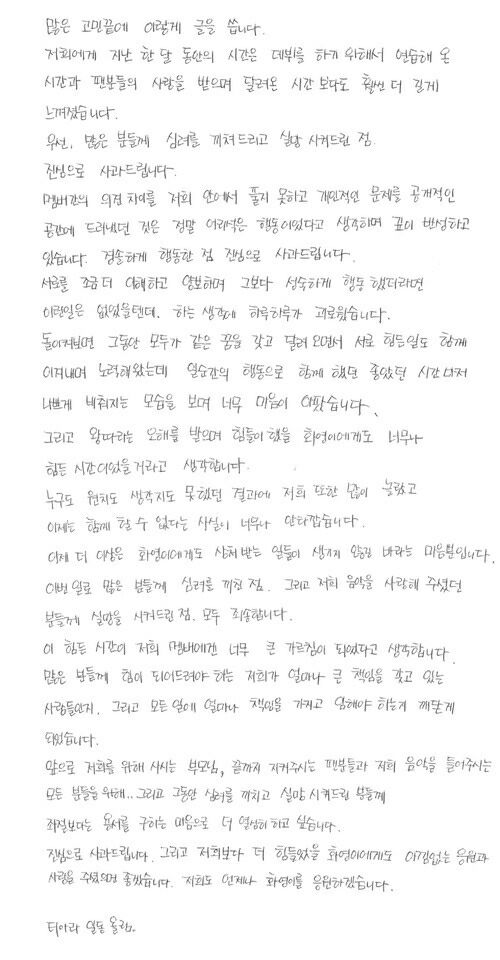 많은 고민끝에 이렇게 글을 씁니다.
저희에게 지난 한 달 동안의 시간은 데뷔를 하기 위해서 연습해 온
시간과 팬분들의 사랑을 받으며 달려온 시간 보다도 훨씬 더 길게
느껴졌습니다.
우선, 많은 분들께 심려를 끼쳐드리고 실망 시켜드린 점
진심으로 사과드립니다.
멤버간의 의견 차이를 저희 안에서 풀지 못하고 개인적인 문제를 공개적인
공간에 드러냈던 것은 정말 어리석은 행동이었다고 생각하며 깊이 반성하고
있습니다. 경솔하게 행동한 점 진심으로 사과드립니다.
서로를 조금 더 이해하고 양보하며 그보다 성숙하게 행동 했더라면
이런일은 없었을텐데. 하는 생각에 하루하루가 괴로웠습니다.
돌이켜보면 그동안 모두가 같은 꿈을 갖고 달려 오면서 서로 힘든일도 함께
이겨내며 노력해왔는데 일순간의 행동으로 함께 했던 좋았던 시간마저
나쁘게 비춰지는 모습을 보며 너무 마음이 아팠습니다.
그리고 왕따라는 오해를 받으며 힘들어 했을 화영이에게도 너무나
힘든 시간이었을거라고 생각합니다.
누구도 원치도 생각지도 못했던 결과에 저희 또한 많이 놀랐고
이제는 함께 할 수 없다는 사실이 너무나 안타깝습니다.
이제 더 이상은 화영이에게도 상처 받는 일들이 생기지 않길 바라는 마음뿐입니다.
이번 일로 많은 분들께 심려를 끼친 점. 그리고 저희 음악을 사랑해 주셨던
분들께 실망을 시켜드린 점. 모두 죄송합니다.
이 힘든 시간이 저희 멤버에겐 너무 큰 가르침이 되었다고 생각합니다.
많은 분들께 힘이 되어드려야 하는 저희가 얼마나 큰 책임을 갖고 있는
사람들인지. 그리고 모든 일에 얼마나 책임을 가지고 임해야 하는게 깨닫게
되었습니다.
앞으로 저희를 위해 사시는 부모님, 끝까지 지켜주시는 팬분들과 저희 음악을 들어주시는
모든 분들을 위해.. 그리고 그동안 심려를 끼치고 실망 시켜드린 분들께
좌절보다는 용서를 구하는 마음으로 더 열심히 하고 싶습니다.
진심으로 사과드립니다. 그리고 저희보다 더 힘들었을 화영이에게도 아낌없는 응원과
사랑을 주셨으면 좋겠습니다. 저희도 언제나 화영이를 응원하겠습니다.
티아라 일동 올림.